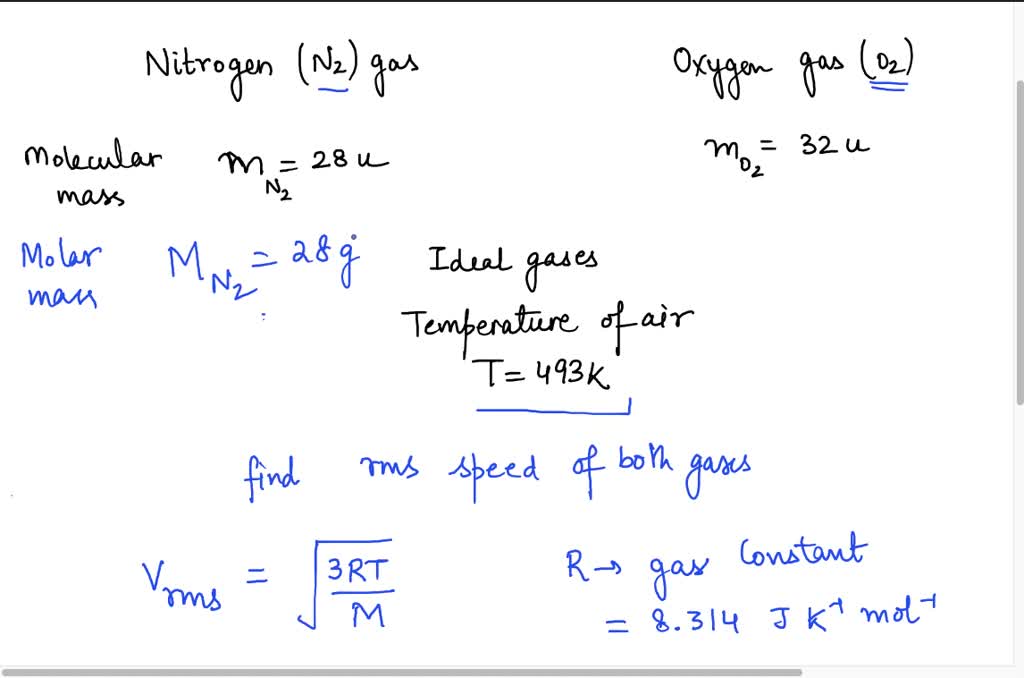 Nitrogen (N₂) gas
Oxygen gas (O₂)
Molecular mass
m_N₂ = 28 u
m_O₂ = 32 u
Molar mass
M_N₂ = 28 g
Ideal gases
Temperature of air
T = 493K
find rms speed of both gases
V_rms = √(3RT/M)
R → gas Constant
= 8.314 J K⁻¹ mol⁻¹